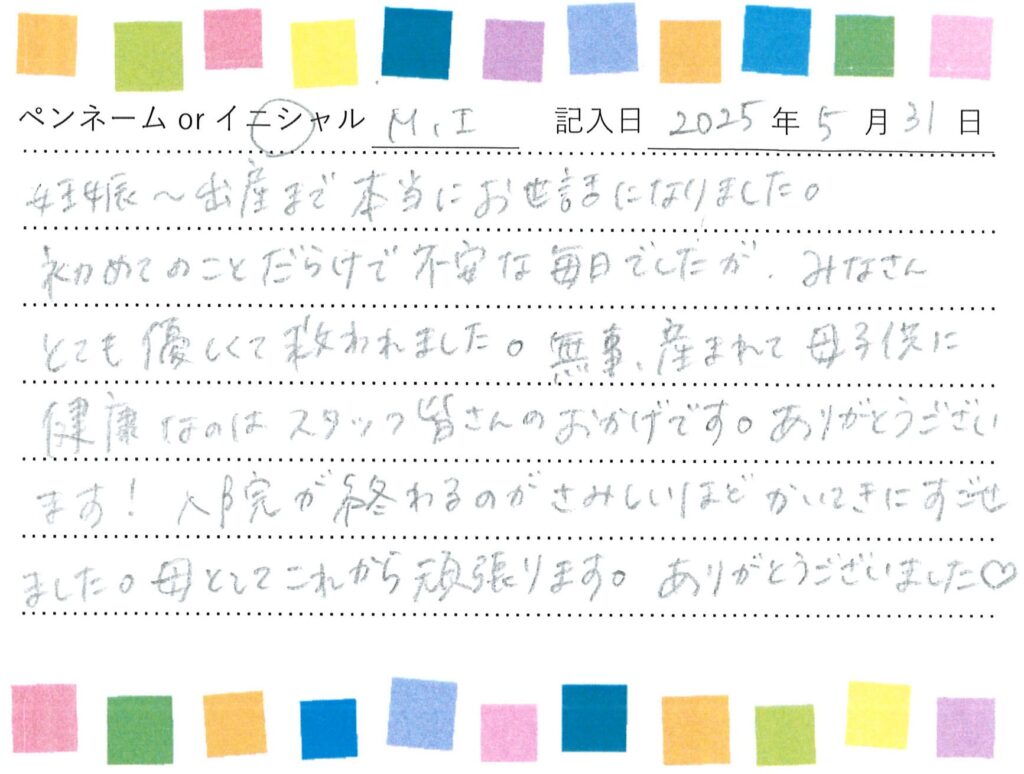 ペンネーム or イニシャル M.I 記入日 2025 年 5 月 31 日
妊娠～出産まで本当にお世話になりました。
初めてのことだらけで不安な毎日でしたが、みなさん
とても優しくて救われました。無事、産まれて母子供に
健康なのはスタッフ皆さんのおかげです。ありがとうござい
ます！入院が終わるのがさみしいほどかいてきにすごせ
ました。母としてこれから頑張ります。ありがとうございました♡